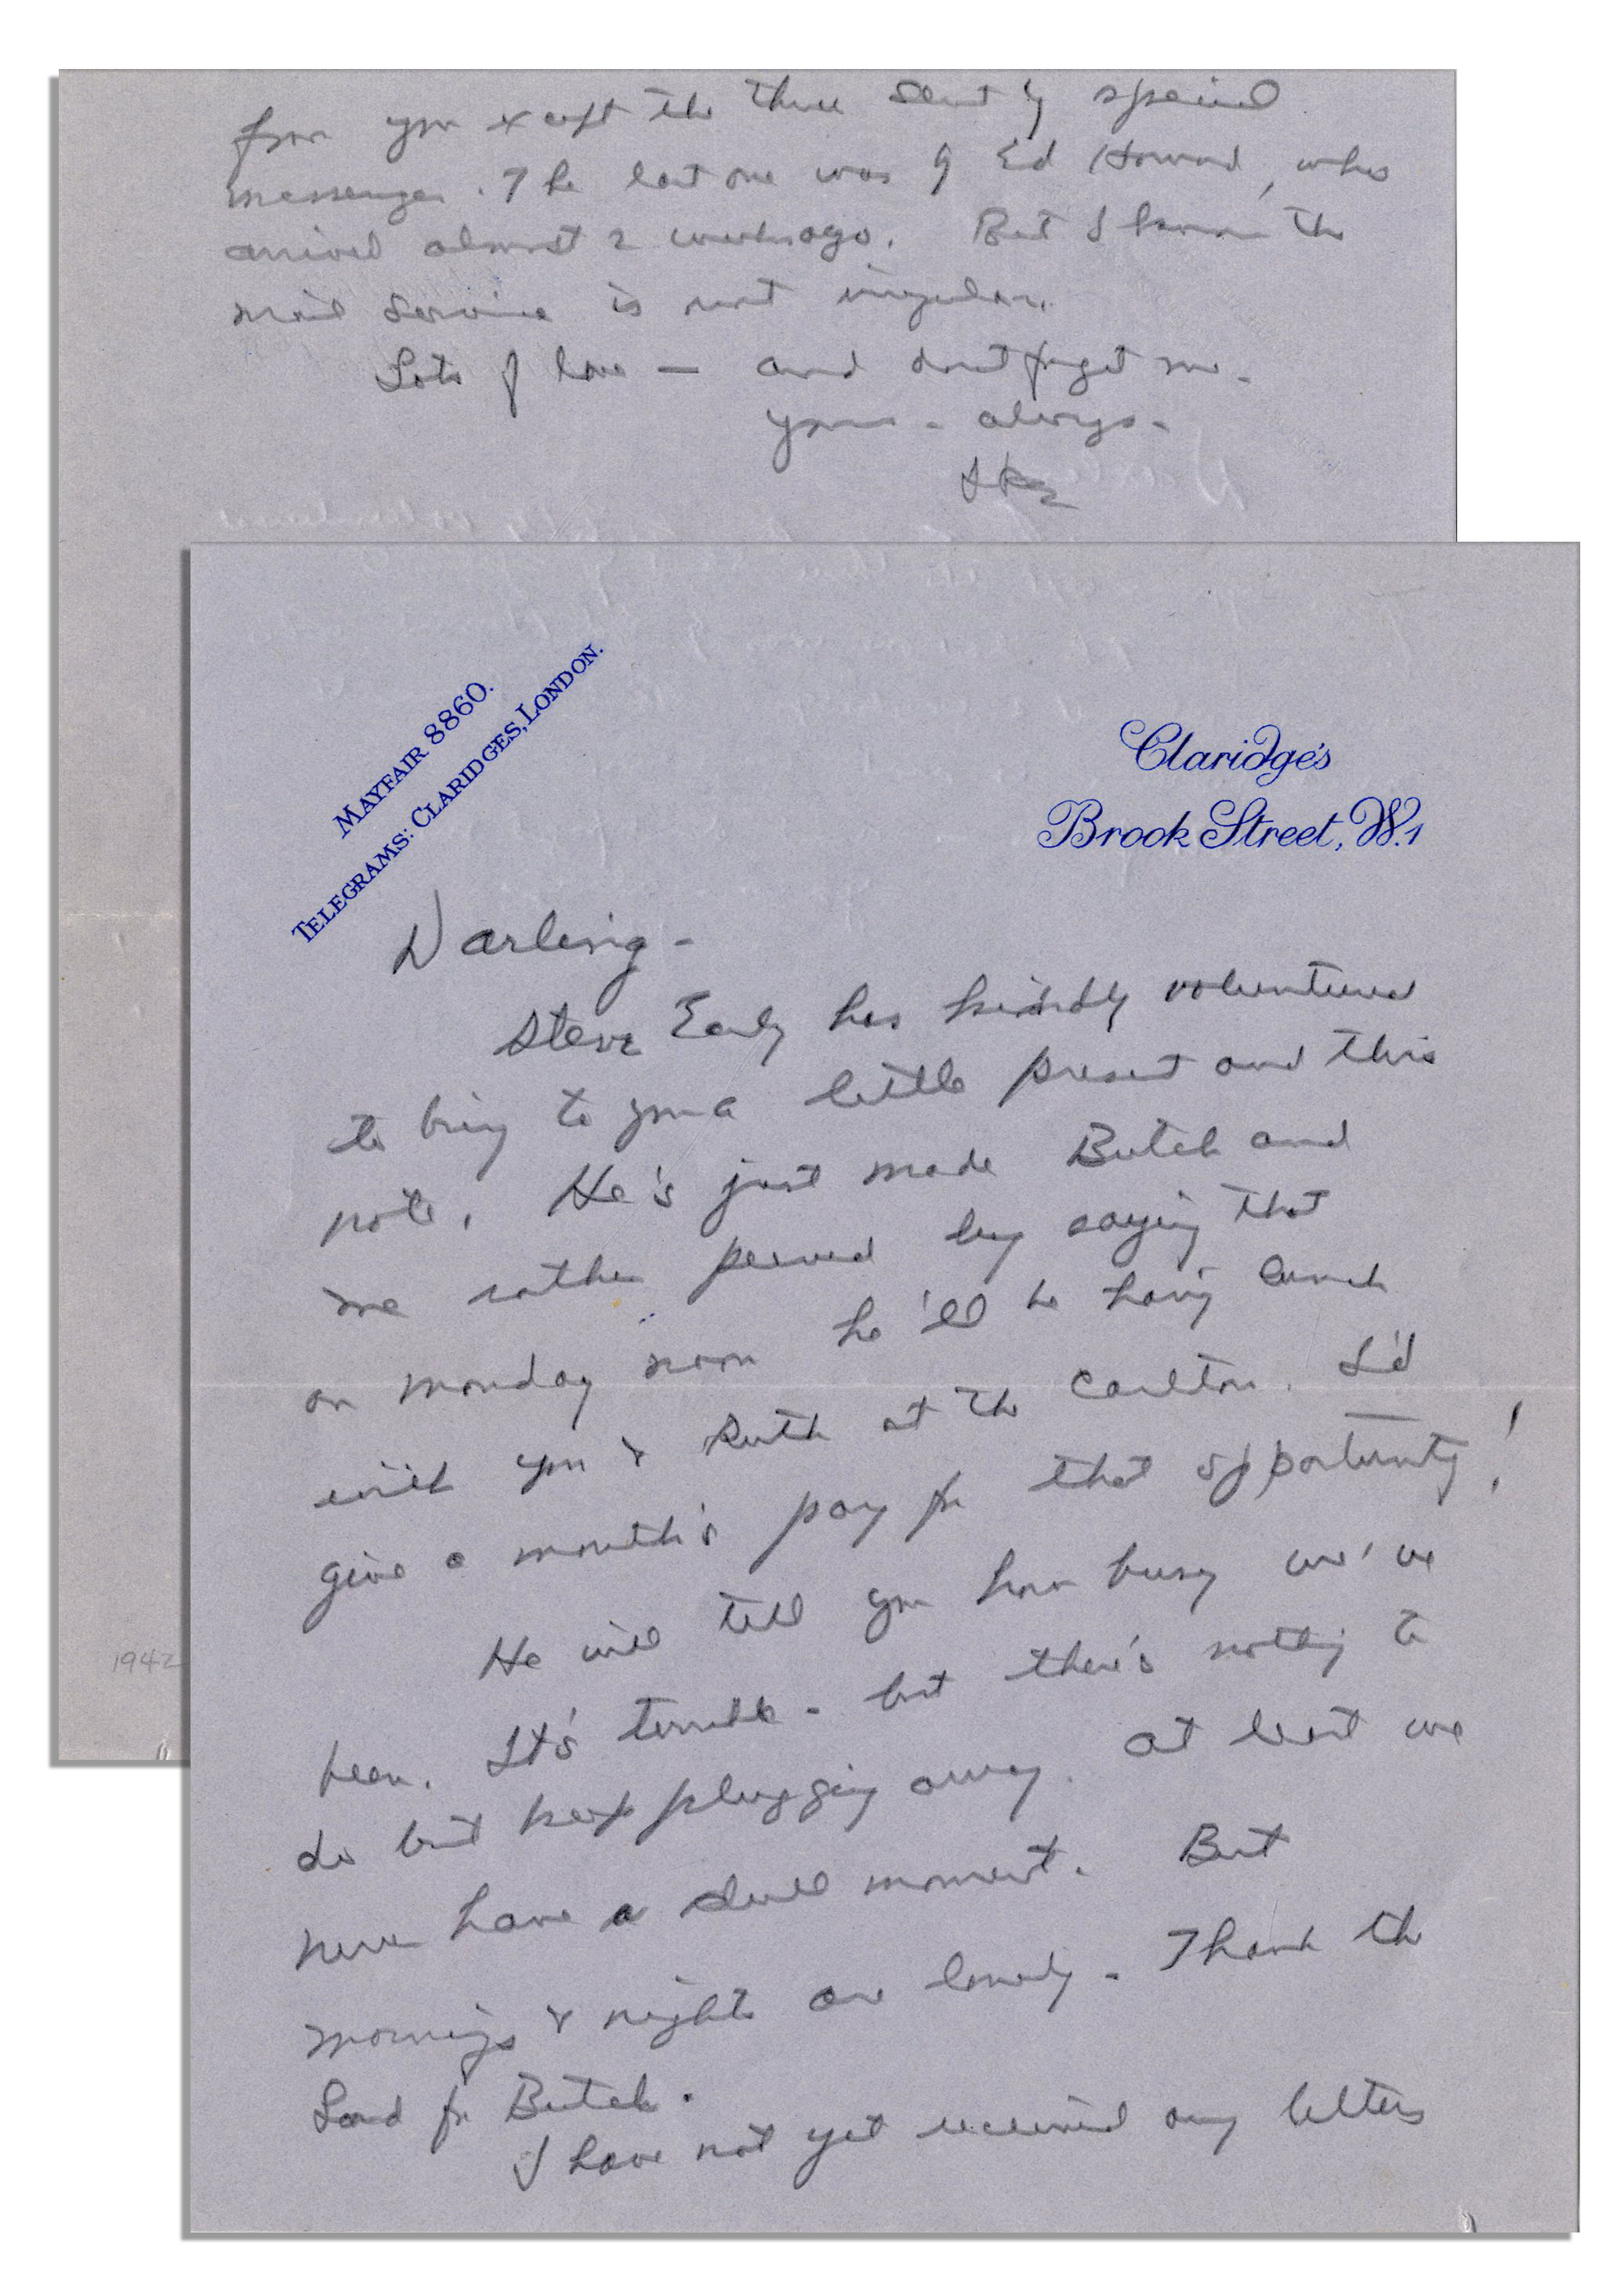 MAYFAIR 8860.
TELEGRAMS: CLARIDGES, LONDON.
Claridge's
Brook Street, W.1
Darling -
Steve Early has kindly volunteered
to bring to you a little present and this
note. He's just made Butch and
me rather peeved by saying that
on Monday noon he'll be having lunch
with you & Ruth at the Carlton. I'd
give a month's pay for that opportunity!
He will tell you how busy we've
been. It's terrible - but there's nothing to
do but keep plugging away. At least we
never have a dull moment. But
mornings & nights are lonely - Thank the
Lord for Butch.
I have not yet received any letters
from you except the three sent by special
messenger. The last one was by Ed Howard, who
arrived almost 2 weeks ago. But I know the
mail service is irregular.
Lots of love - and don't forget me -
Yours - always -
Ike
1942